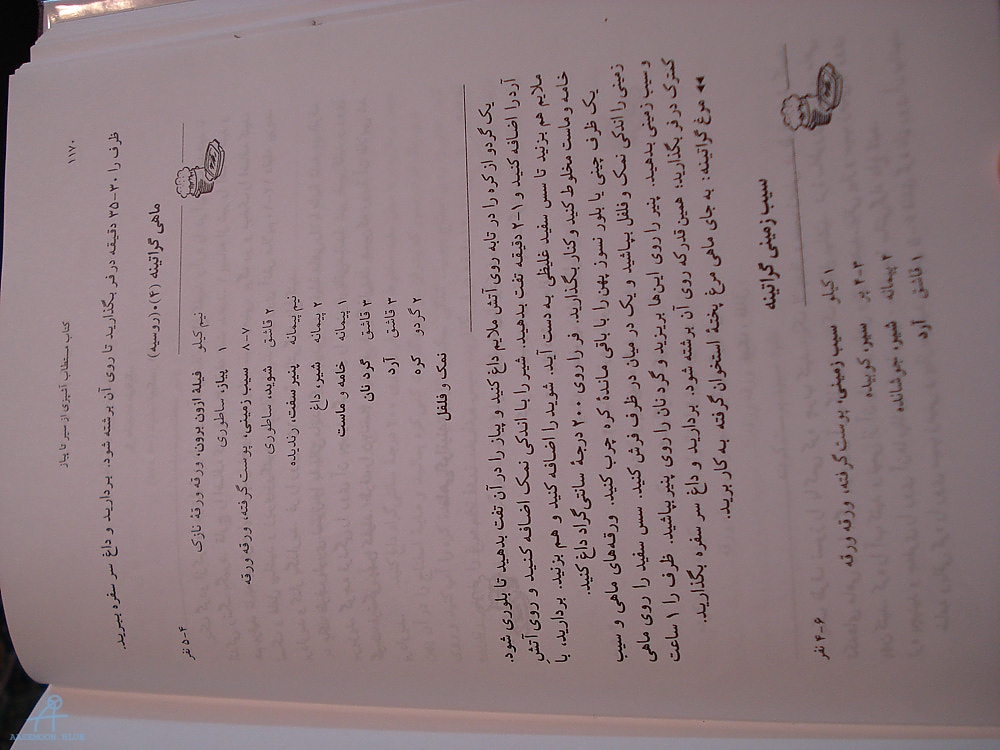 ۱۱۷۰
کتاب مستطاب آشپزی از سیر تا پیاز
ظرف را ۳۰-۲۵ دقیقه در فر بگذارید تا روی آن برشته شود. بردارید و داغ سر سفره ببرید.
ماهی گراتینه (۴)• (روسیه)
۵-۴ نفر
فیلهٔ ازون برون، ورقه ورقهٔ نازک نیم کیلو
پیاز، ساطوری ۱
سیب زمینی، پوست گرفته، ورقه ورقه ۸-۷
شوید، ساطوری ۲ قاشق
پنیر سفت، رندیده نیم پیمانه
شیر داغ ۲ پیمانه
خامه و ماست ۱ پیمانه
گرد نان ۳ قاشق
آرد ۳ قاشق
کره ۲ گردو
نمک و فلفل
یک گردو از کره را در تابه روی آتش ملایم داغ کنید و پیاز را در آن تفت بدهید تا بلوری شود.
آرد را اضافه کنید و ۲-۱ دقیقه تفت بدهید. شیر را با اندکی نمک اضافه کنید و روی آتش
ملایم هم بزنید تا سس سفید غلیظی به دست آید. شوید را اضافه کنید و هم بزنید. بردارید، با
خامه و ماست مخلوط کنید و کنار بگذارید. فر را روی ۲۰۰ درجهٔ سانتی‌گراد داغ کنید.
یک ظرف چینی یا بلور نسوز پهن را با باقی ماندهٔ کره چرب کنید. ورقه‌های ماهی و سیب
زمینی را اندکی نمک و فلفل بپاشید و یک در میان در ظرف فرش کنید. سس سفید را روی ماهی
و سیب زمینی بدهید. پنیر را روی این‌ها بریزید و گرد نان را روی پنیر بپاشید. ظرف را ۱ ساعت
کمترک در فر بگذارید؛ همین قدر که روی آن برشته شود. بردارید و داغ سر سفره بگذارید.
◄◄ مرغ گراتینه: به جای ماهی مرغ پختهٔ استخوان گرفته به کار برید.
سیب زمینی گراتینه
۶-۴ نفر
سیب زمینی، پوست گرفته، ورقه ورقه ۱ کیلو
سیر، کوبیده ۳-۲ پر
شیر، جوشانده ۲ پیمانه
آرد ۱ قاشق